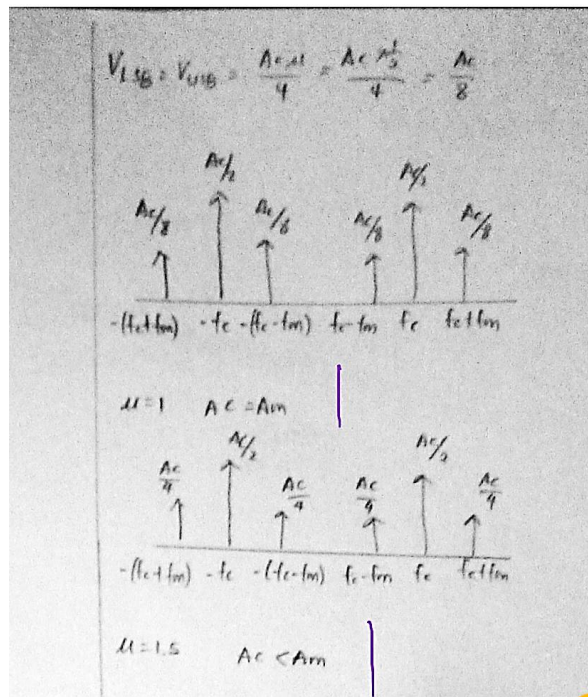 V_LSB = V_USB = Acμ/4 = Ac 1/2/4 = Ac/8
Ac/2 Ac/2
Ac/8 Ac/8 Ac/8 Ac/8
-(fc+fm) -fc -(fc-fm) fc-fm fc fc+fm
μ=1 Ac=Am
Ac/2 Ac/2
Ac/4 Ac/4 Ac/4 Ac/4
-(fc+fm) -fc -(fc-fm) fc-fm fc fc+fm
μ=1.5 Ac<Am